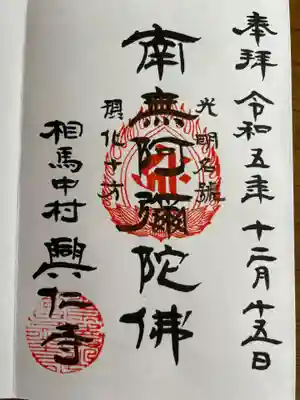 奉拝 令和五年 十二月廿五日
光明名號
南無阿彌陀佛
化十方
相馬中村 興仁寺